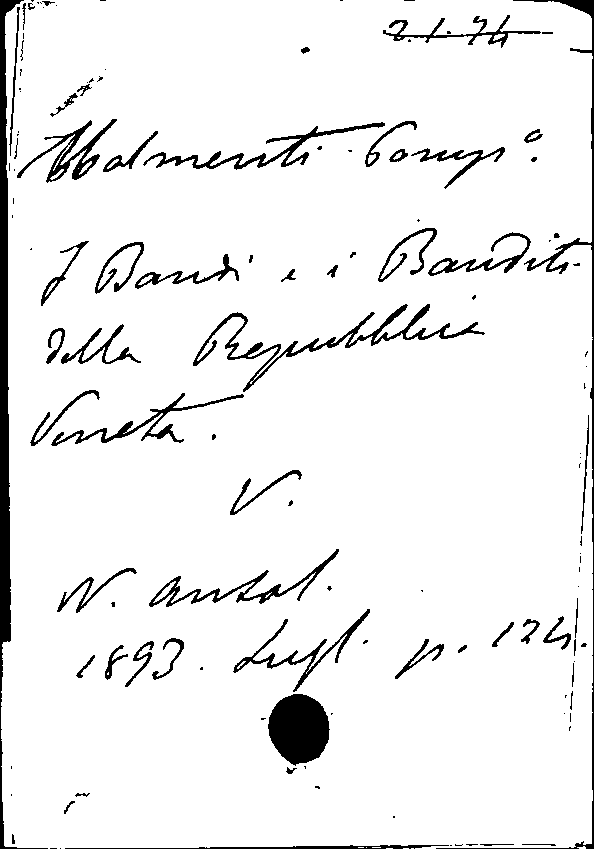 2.1.74
Molmenti Pomp°.
I Bandi e i Banditi
della Repubblica
Veneta.
V.
N. Antol.
1893. Lugl. p. 124.